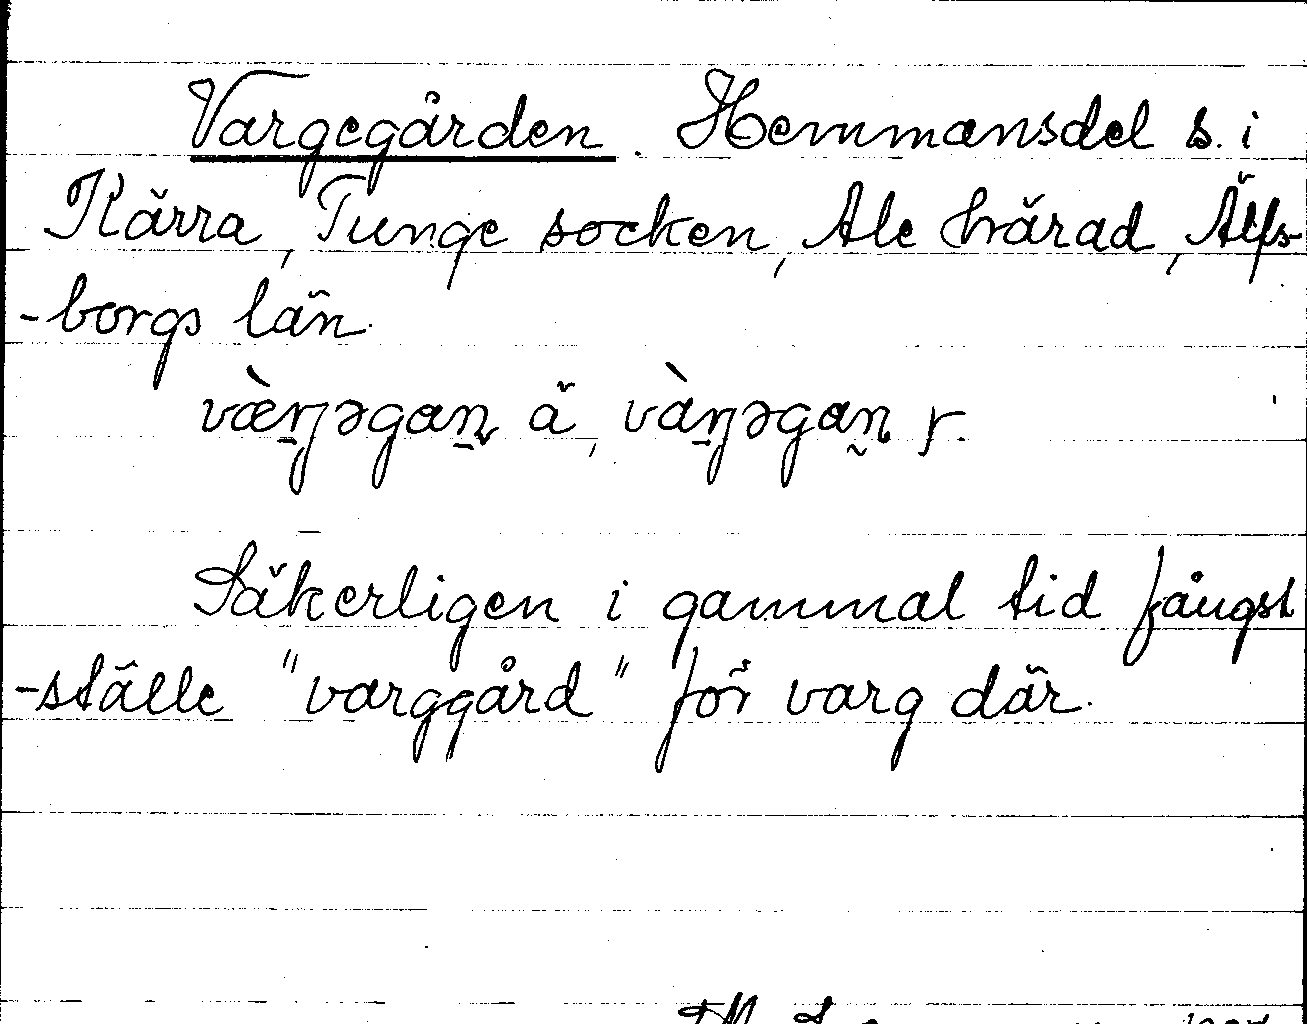 Vargegården. Hemmansdel s. i
Kärra, Tunge socken, Ale härad, Älfs-
-borgs län.
Säkerligen i gammal tid fångst
-ställe "varggård" för varg där.